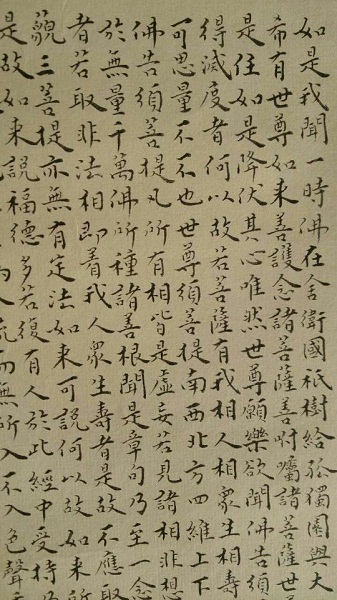 如是我聞一時佛在舍衛國祇樹給孤獨園與大
希有世尊如來善護念諸菩薩善咐囑諸菩薩世
是住如是降伏其心唯然世尊願樂欲聞佛告須
得滅度者何以故若菩薩有我相人相眾生相壽
可思量不不也世尊須菩提南西北方四維上下
佛告須菩提凡所有相皆是虛妄若見諸相非想
於無量千萬佛所種諸善根聞是章句乃至一念
者若取非法相即着我人眾生壽者是故不應取
藐三菩提亦無有定法如來可說何以故如來所
是故如來說福德多若復有人於此經中受持
流而無所入不入色聲